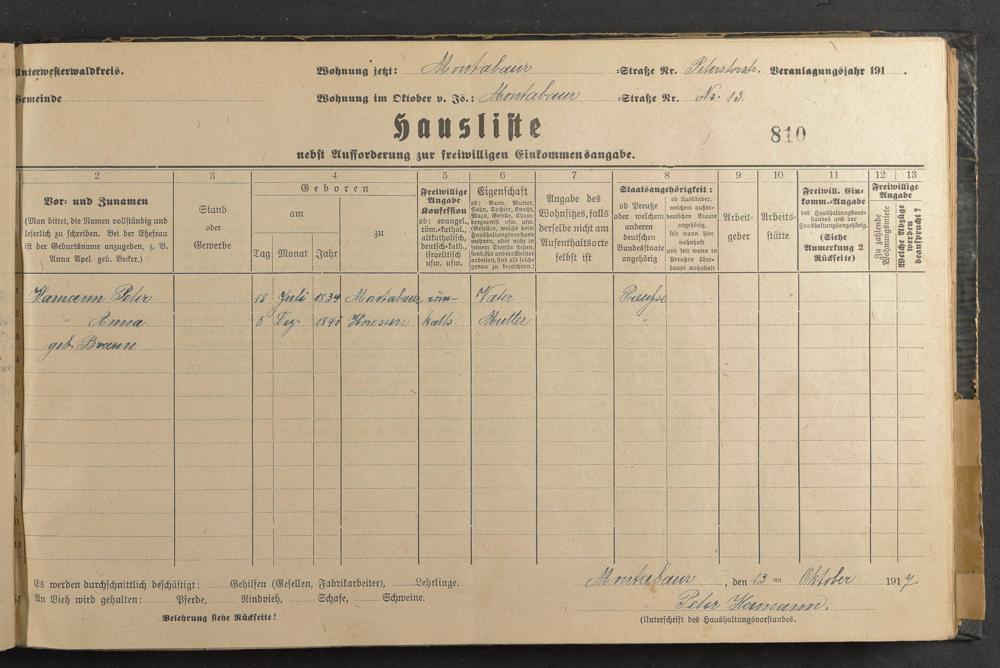 Unterwesterwaldkreis. Wohnung jetzt: Montabaur Straße Nr. Peterstorstr. Veranlagungsjahr 191 .
Gemeinde Wohnung im Oktober v. Js.: Montabaur Straße Nr. No. 13.
Hausliste
810
nebst Aufforderung zur freiwilligen Einkommensangabe.
2 3 4 5 6 7 8 9 10 11 12 13
Vor- und Zunamen
(Man bittet, die Namen vollständig und
leserlich zu schreiben. Bei der Ehefrau
ist der Geburtsname anzugeben, z. B.
Anna Apel geb. Becker.)
Stand
oder
Gewerbe
Geboren
am
zu
Tag Monat Jahr
Freiwillige
Angabe
Konfession
ob: evangel.,
röm.-kathol.,
altkatholisch,
deutsch-kath.,
israelitisch
usw. usw.
Eigenschaft
ob: Vater, Mutter,
Sohn, Tochter, Knecht,
Magd, Geselle, Cham-
bregarnist usw. usw.
(Gesellen, welche beim
Haushaltungsvorstand
wohnen, aber nicht in
seinem Dienste stehen,
sond. für and. Meister
arbeiten, sind als solche
genau zu bezeichnen.)
Angabe des
Wohnsitzes, falls
derselbe nicht am
Aufenthaltsorte
selbst ist
Staatsangehörigkeit:
ob Preuße
oder welchem
anderen
deutschen
Bundesstaate
angehörig
ob Ausländer,
welchem außer-
deutschen Staate
angehörig,
seit wann hier
wohnhaft
und seit wann in
Preußen über-
haupt wohnhaft
Arbeit-
geber
Arbeits-
stätte
Freiwill. Ein-
komm.-Angabe
des Haushaltungsvor-
standes und der
Haushaltungsangehörig.
(Siehe
Anmerkung 2
Rückseite)
Freiwillige
Angabe
Zu zahlende
Wohnungsmiete
Welche Abzüge
werden
beansprucht?
Hamann Peter 18 Juli 1834 Montabaur röm- Vater Preuße
" Anna 5 Dez. 1840 kath. Mutter "
geb. Braun
Es werden durchschnittlich beschäftigt: Gehilfen (Gesellen, Fabrikarbeiter), Lehrlinge.
An Vieh wird gehalten: Pferde, Rindvieh, Schafe, Schweine.
Belehrung siehe Rückseite!
Montabaur, den 13 ten Oktober 1917.
Peter Hamann.
(Unterschrift des Haushaltungsvorstandes.